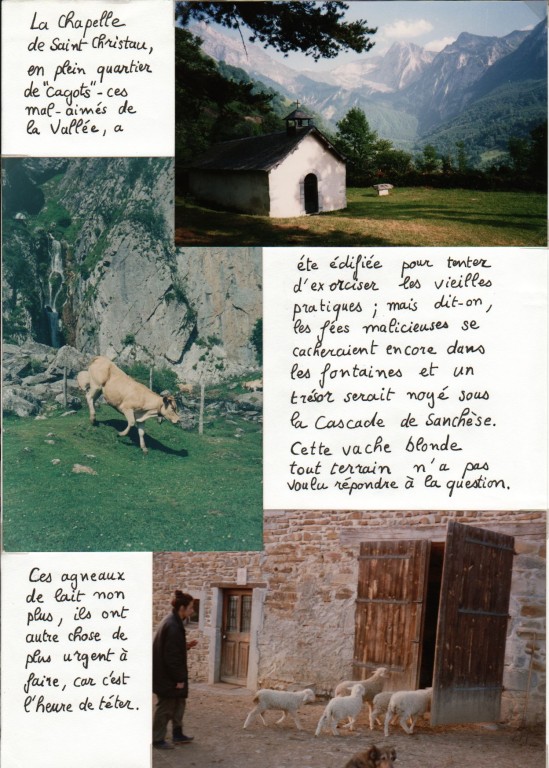 La Chapelle
de Saint Christau,
en plein quartier
de "Cagots" - ces
mal-aimés de
la Vallée, a
été édifiée pour tenter
d'exorciser les vieilles
pratiques ; mais dit-on,
les fées malicieuses se
cacheraient encore dans
les fontaines et un
trésor serait noyé sous
la Cascade de Sanchèse.
Cette vache blonde
tout terrain n'a pas
voulu répondre à la question.
Ces agneaux
de lait non
plus, ils ont
autre chose de
plus urgent à
faire, car c'est
l'heure de téter.